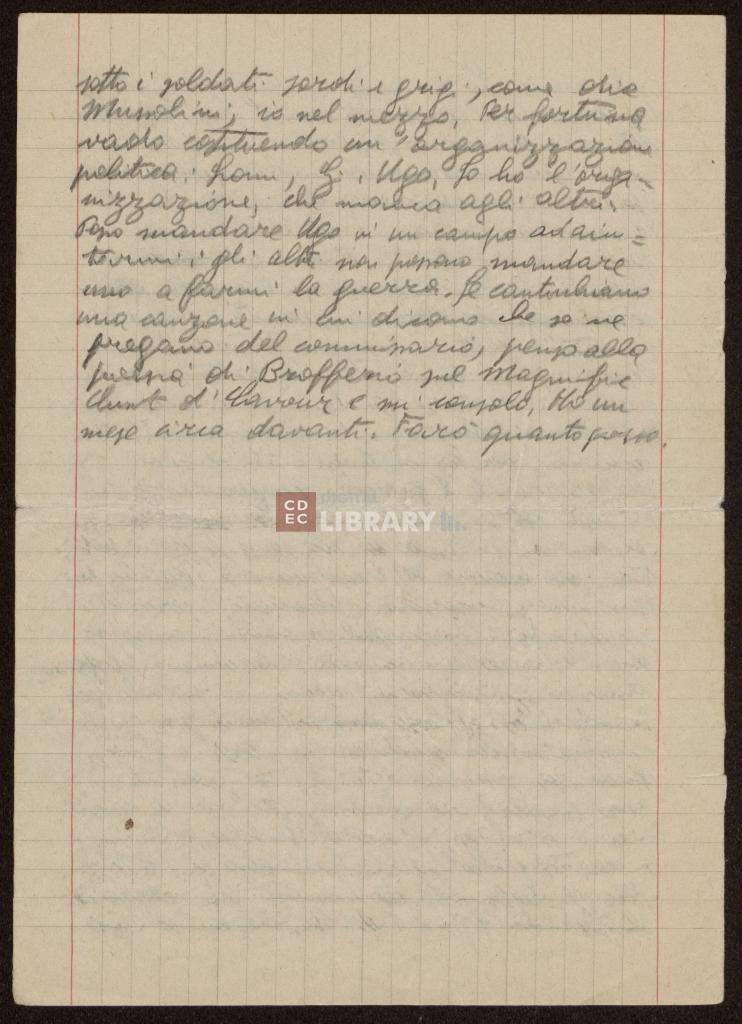 sotto i soldati sordi e grigi, come dice
Mussolini; io nel mezzo. Per fortuna
vado costituendo un'organizzazione
politica: Ugo. Io ho l'orga-
nizzazione, che manca agli altri.
Posso mandare Ugo in un campo ad
gli altri non possono mandare
uno a farmi la guerra. Se
una canzone in cui dicono che se ne
fregano del commissario, penso alla
poesia di Brofferio sul Magnific
Cunt d' Cavour e mi consolo. Ho un
mese circa davanti. Farò quanto posso.
CDEC
digital
LIBRARY